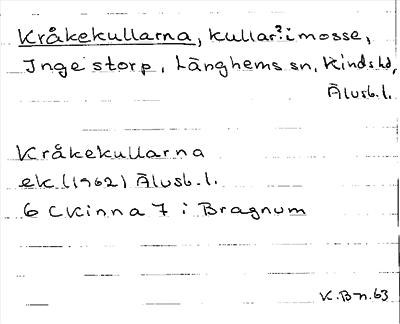 Kråkekullarna, kullar? i mosse,
Ingestorp, Länghems sn, Kinds hd,
Älvsb. l.
Kråkekullarna
ek (1962) Älvsb. l.
6 C Kinna 7 i Bragnum
K. B-n. 63